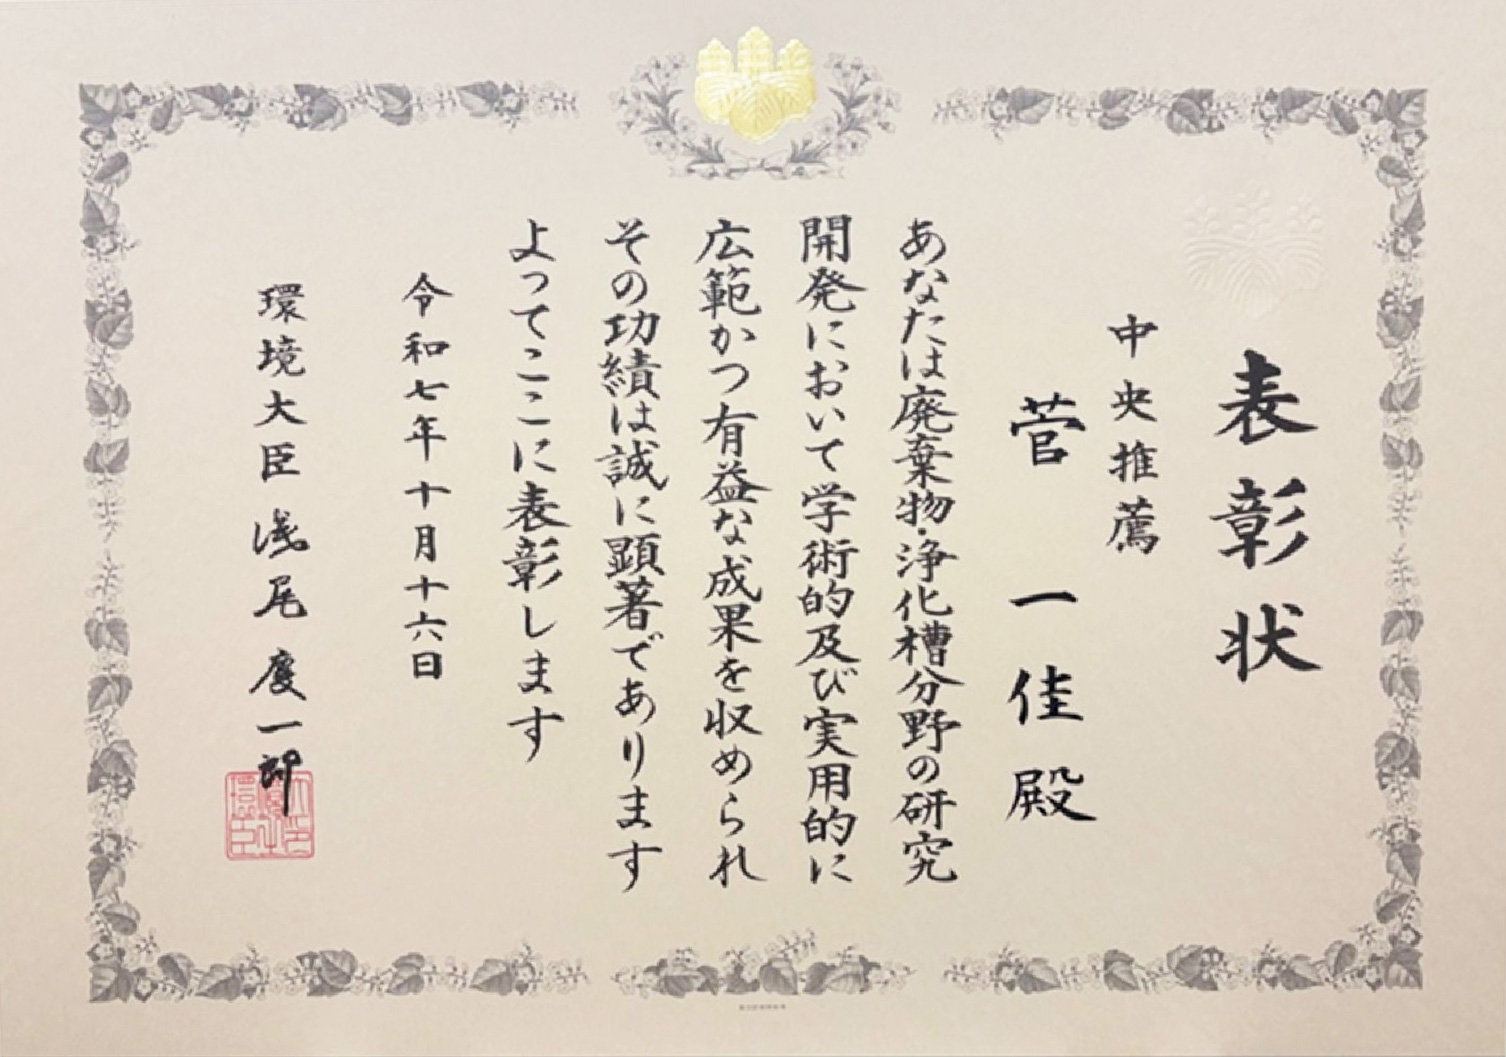 表彰状
中央推薦
菅一佳殿
あなたは廃棄物・浄化槽分野の研究
開発において学術的及び実用的に
広範かつ有益な成果を収められ
その功績は誠に顕著であります
よってここに表彰します
令和七年十月十六日
環境大臣 浅尾慶一郎